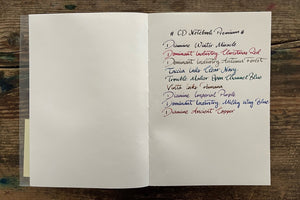 # CD Notebook Premium #
Diamine Winter Miracle
Dominant Industry Christmas Red
Dominant Industry Autumn Forest
Taccia Inks Clear Navy
Trouble Maker Open Channel Blue
Vinta Inks Humana
Diamine Imperial Purple
Dominant Industry Milky Way Blue
Diamine Ancient Copper